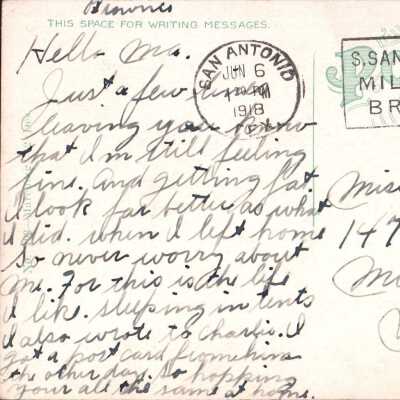 Brownes
THIS SPACE FOR WRITING MESSAGES.
Hello Ma.
Just a few lines
leaving you know
that I'm still feeling
fine. And getting fat
I look far better as what
I did. when I left home
So never worry about
me. For this is the life
I like. sleeping in tents
I also wrote to Charlie. I
got a post card from him
the other day. So hopping
your all the same at home.
SAN ANTONIO
JUN 6
PM
1918
TEX
S. SAN
MIL
BR
Miss
147